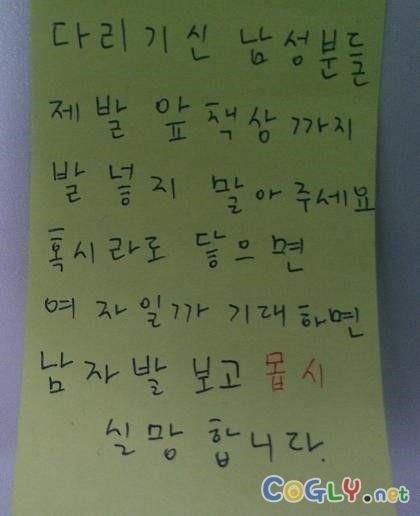 다리기신 남성분들
제발 앞책상까지
발 넣지 말아주세요
혹시라도 닿으면
여자일까 기대하면
남자발 보고 몹시
실망합니다.
COGLY.net